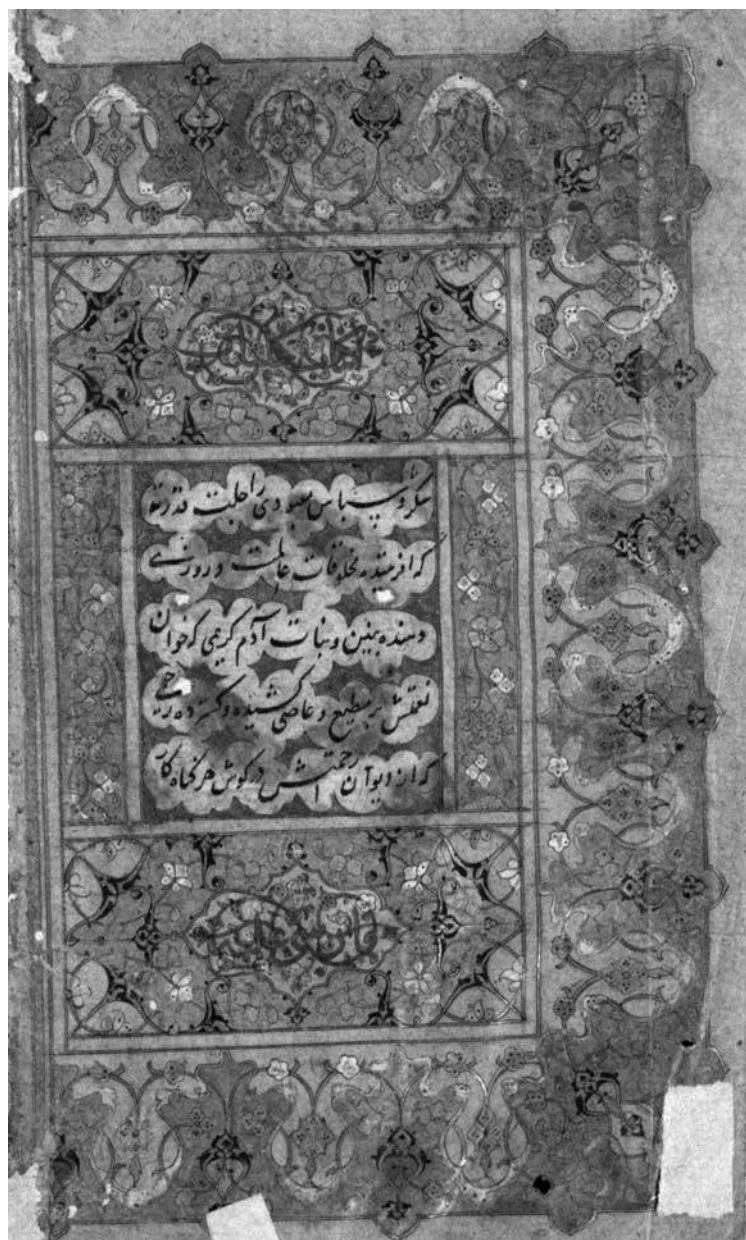 شکر و سپاس معبودی را جلت قدرته
که افریننده مخلوقات عالمست و روزی
دهنده بنین و بنات آدم کریمی که خوان
نعمتش بر مطیع و عاصی کشیده و کسترده رحیمی
که از دیوان رحمتش در کوش هر کناه کار